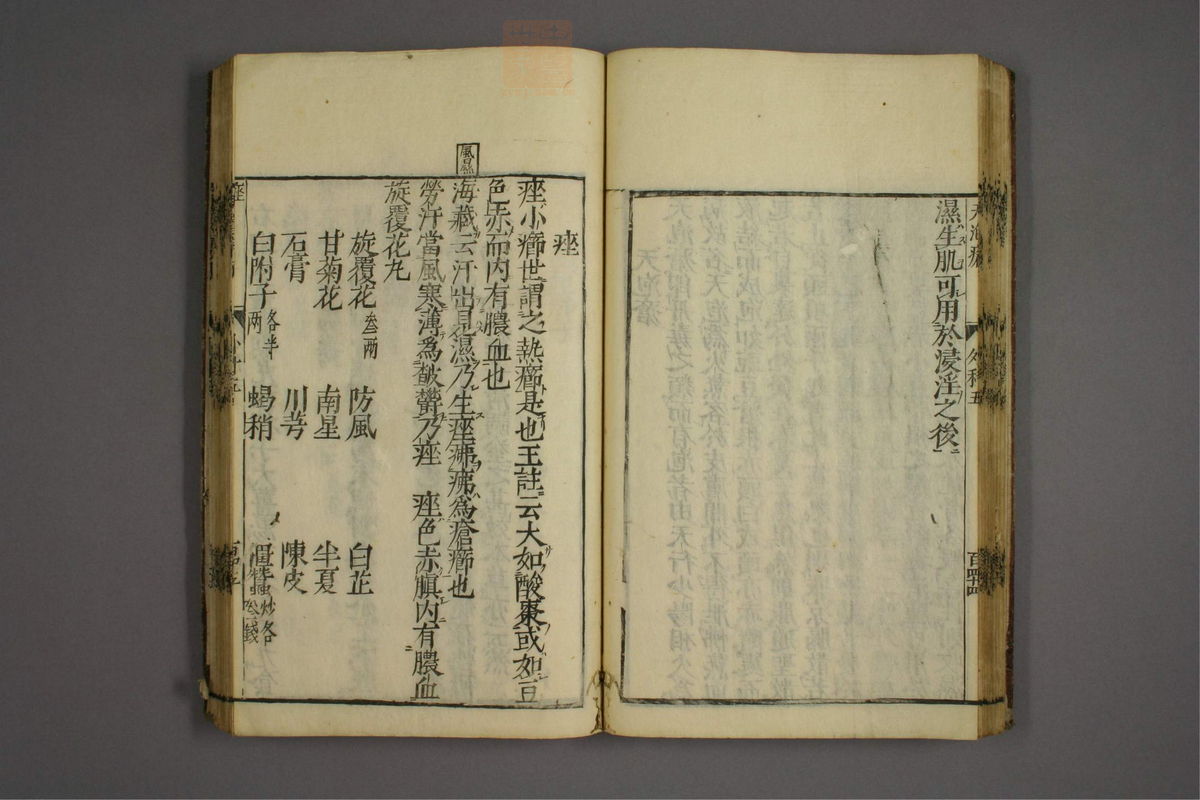 濕生肌可用於浸淫之後
外科五
痤
痤小癤世謂之熱癤是也王註云大如酸棗或如豆
色赤而内有膿血也
海藏云汗出見濕乃生痤疿疿為瘡癤也
勞汗當風寒薄為皶欝乃痤 痤色赤䐜内有膿血
旋覆花丸
旋覆花叁兩 防風 白芷
甘菊花 南星 半夏
石膏 川芎 陳皮
白附子各半兩 蝎稍 僵蠶炒各叁錢